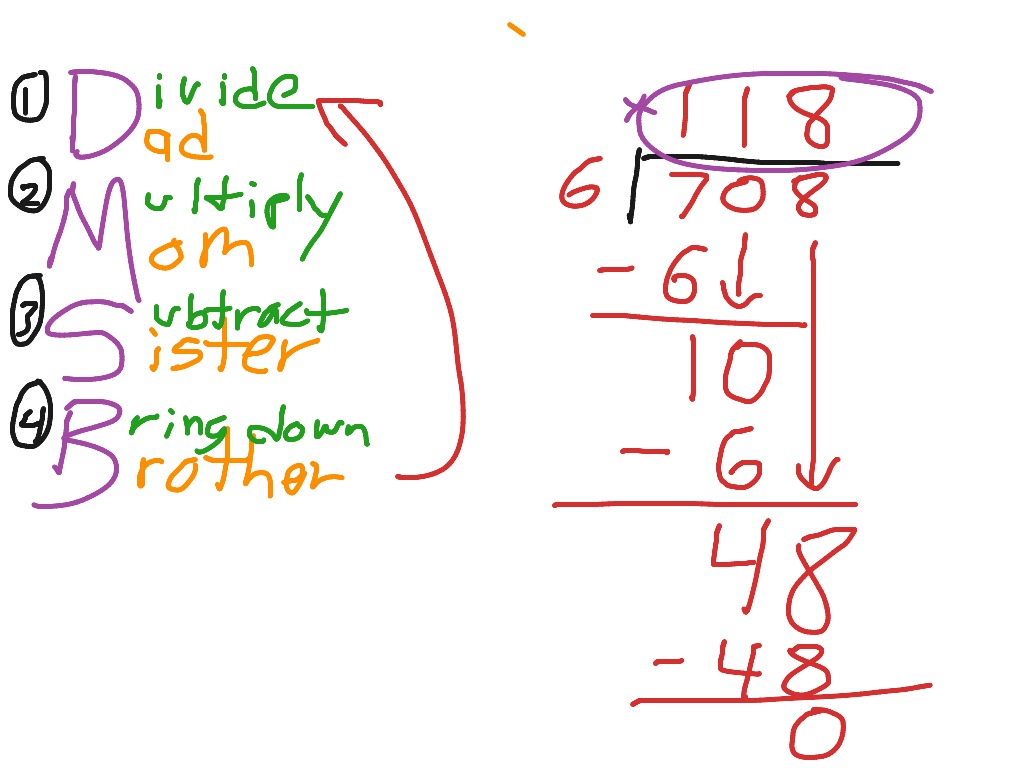 ① Divide
Dad
② Multiply
Mom
③ Subtract
Sister
④ Bring down
Brother
118
6 708
- 6
10
- 6
48
- 48
0